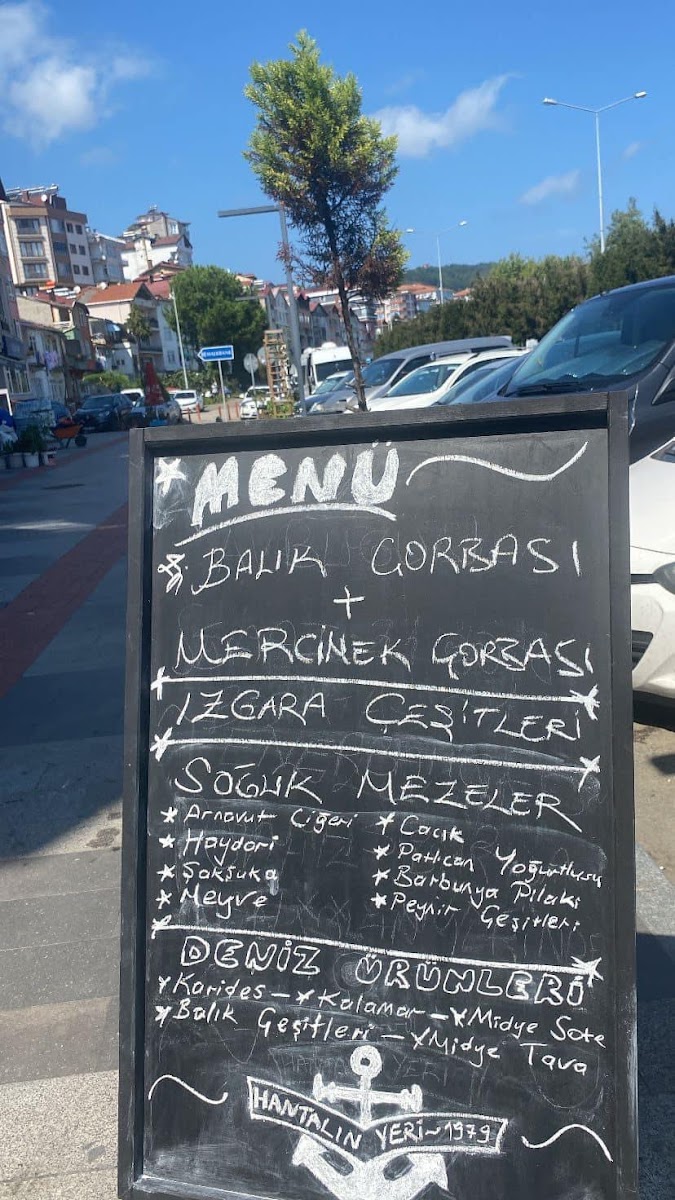 MENÜ
BALIK ÇORBASI
+
MERCİMEK ÇORBASI
IZGARA ÇEŞİTLERİ
SOĞUK MEZELER
* Arnavut Ciğeri * Cacık
* Haydari * Patlıcan Yoğurtlusu
* Şakşuka * Barbunya Pilaki
* Meyve * Peynir Çeşitleri
DENİZ ÜRÜNLERİ
* Karides - * Kalamar - * Midye Sote
* Balık Çeşitleri - * Midye Tava
HANTALIN YERİ ~ 1979